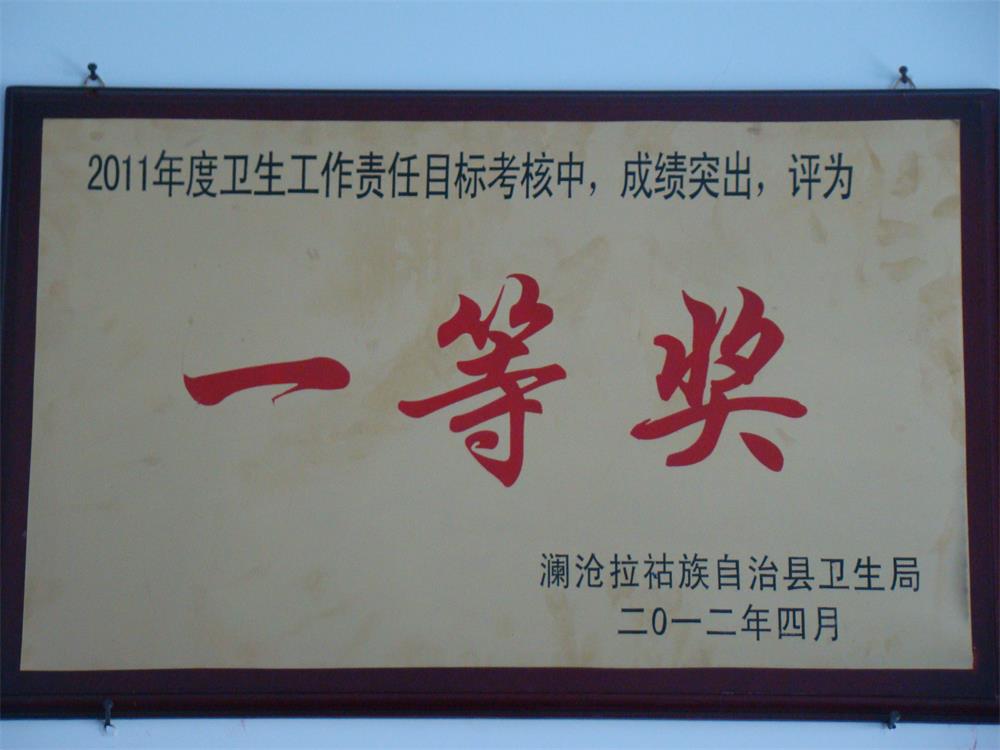 2011年度卫生工作责任目标考核中，成绩突出，评为
一等奖
澜沧拉祜族自治县卫生局
二0一二年四月